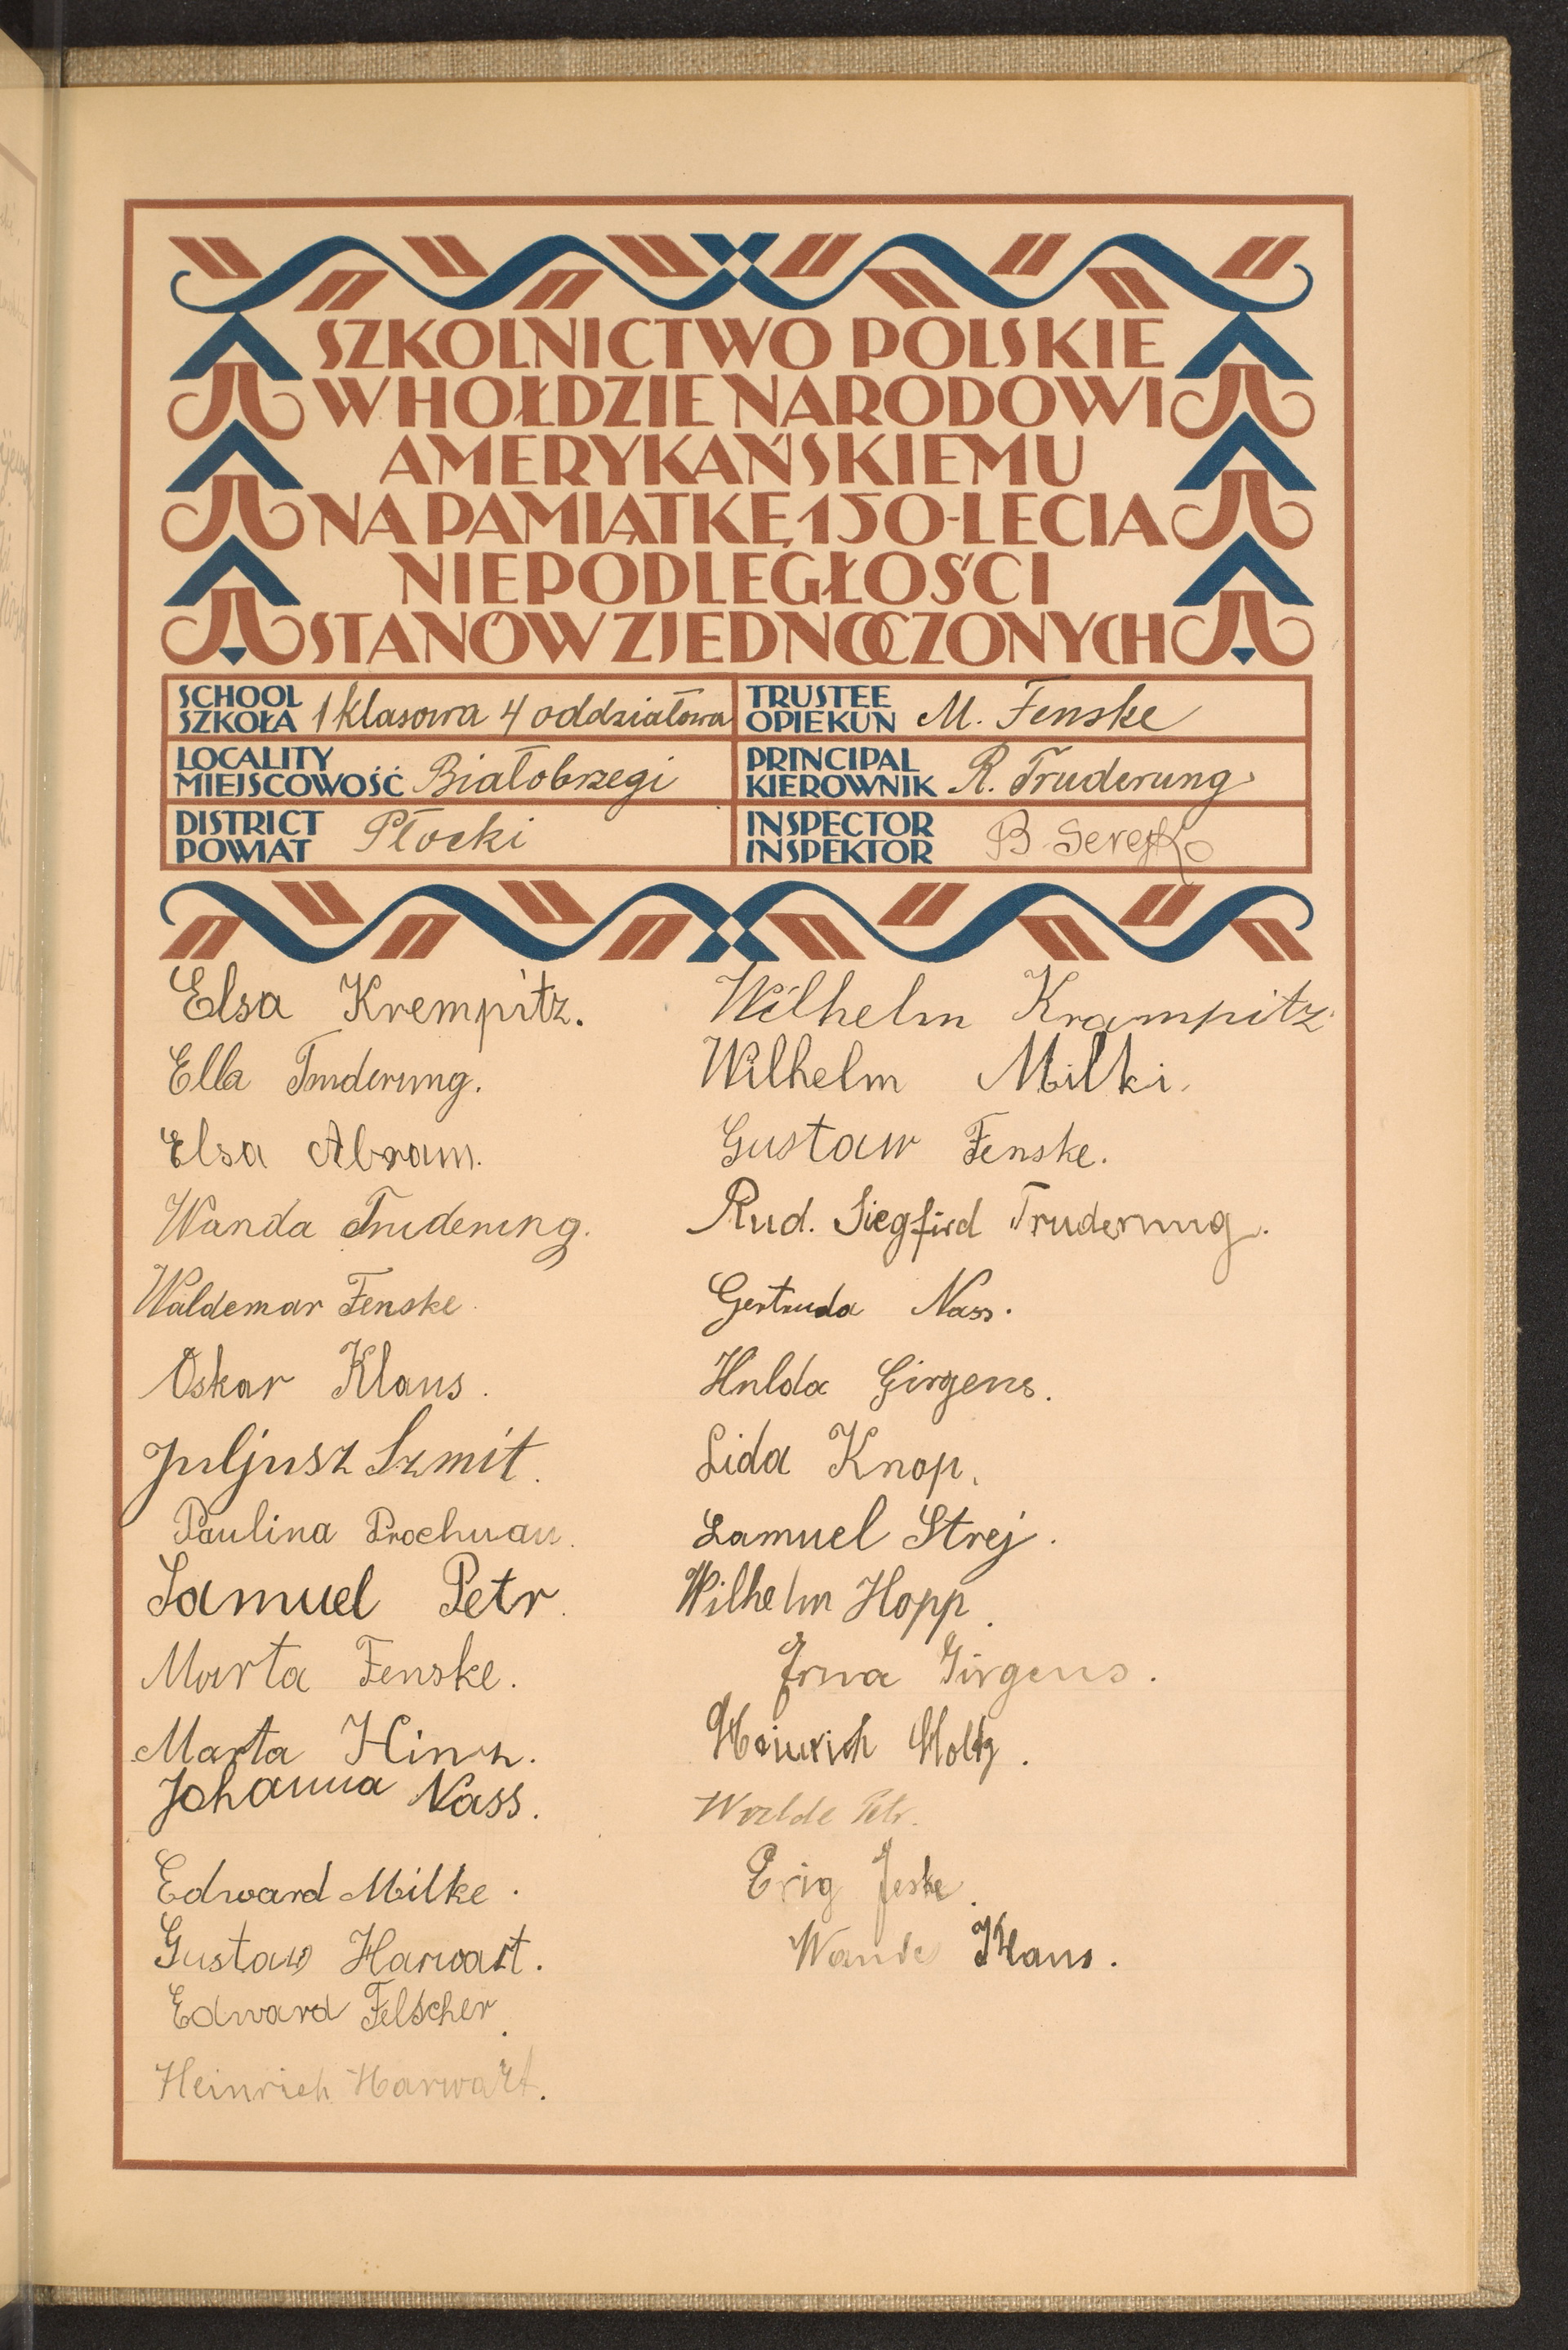 SZKOLNICTWO POLSKIE
W HOŁDZIE NARODOWI
AMERYKAŃSKIEMU
NA PAMIĄTKĘ 150-LECIA
NIEPODLEGŁOŚCI
STANÓW ZJEDNOCZONYCH
SCHOOL
SZKOŁA 1 klasowa 4 oddziałowa
TRUSTEE
OPIEKUN M. Fenske
LOCALITY
MIEJSCOWOŚĆ Białobrzegi
PRINCIPAL
KIEROWNIK R. Truderung
DISTRICT
POWIAT Płocki
INSPECTOR
INSPEKTOR B Serejko
Elsa Krempitz.
Ella Truderung.
Elsa Abram.
Wanda Truderung.
Waldemar Fenske
Oskar Klaus.
Juljusz Szmit.
Paulina Prochnau.
Samuel Petr.
Marta Fenske.
Marta Hinz.
Johanna Nass.
Edward Milke.
Gustaw Harwart.
Edward Felscher.
Heinrich Harwart.
Wilhelm Krampitz
Wilhelm Milki.
Gustaw Fenske.
Rud. Siegfird Truderung.
Gertruda Nass.
Hulda Girgens.
Lida Knop.
Samuel Strej.
Wilhelm Hopp.
Erna Girgens.
Heinrich Holtz.
Petr.
Erig Jeske.
Wande Klaus.